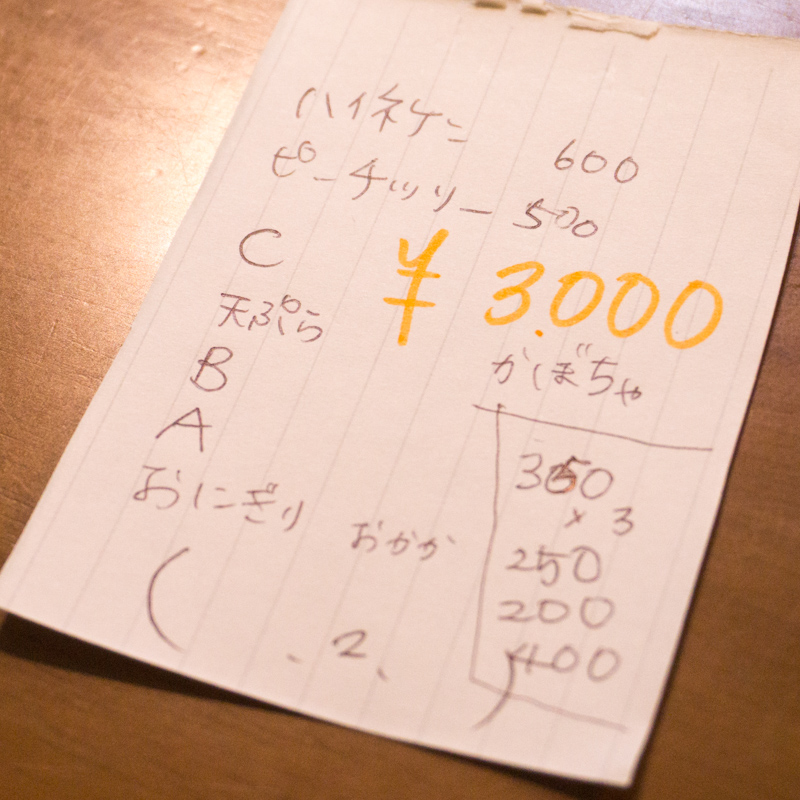 ハイネケン 600
ピーチツリー 500
C ¥3.000
天ぷら かぼちゃ
B
A 350
×3
おにぎり おかか 250
200
( 、2、 ) 400